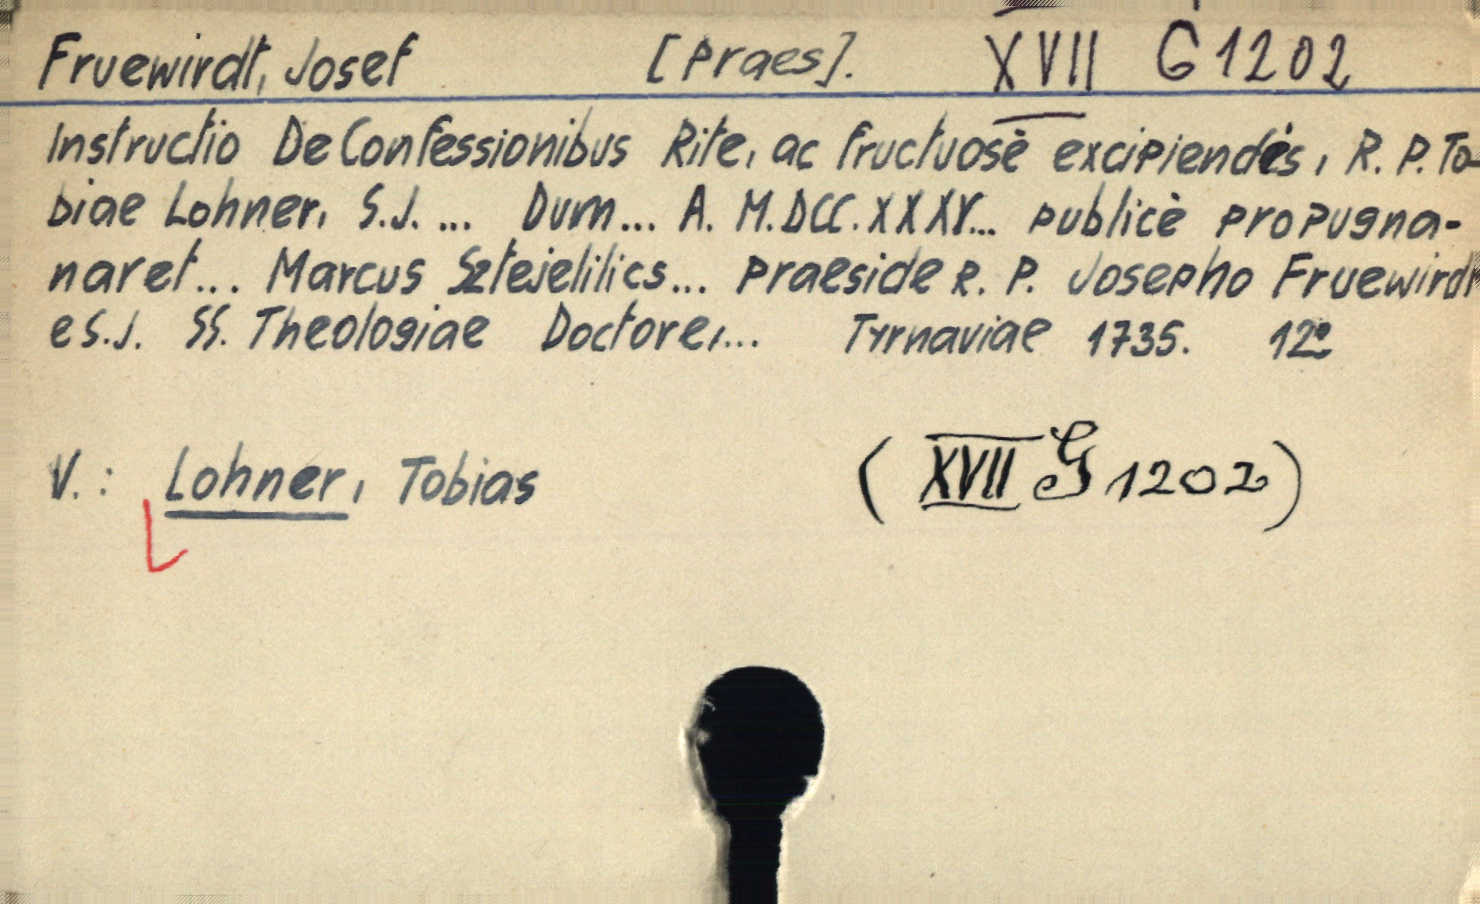 Fruewirdt, Josef [Praes]. XVII G 1202
Instructio De Confessionibus Rite, ac fructuosè excipiendis, R. P. To-
biae Lohner, S.J. ... Dum... A. M.DCC.XXXV... publicè propugna-
naret... Marcus Sztejelilics... praeside R. P. Josepho Fruewirdt
e S.J. SS. Theologiae Doctore,... Tyrnaviae 1735. 12º
V.: Lohner, Tobias (XVII G 1202)